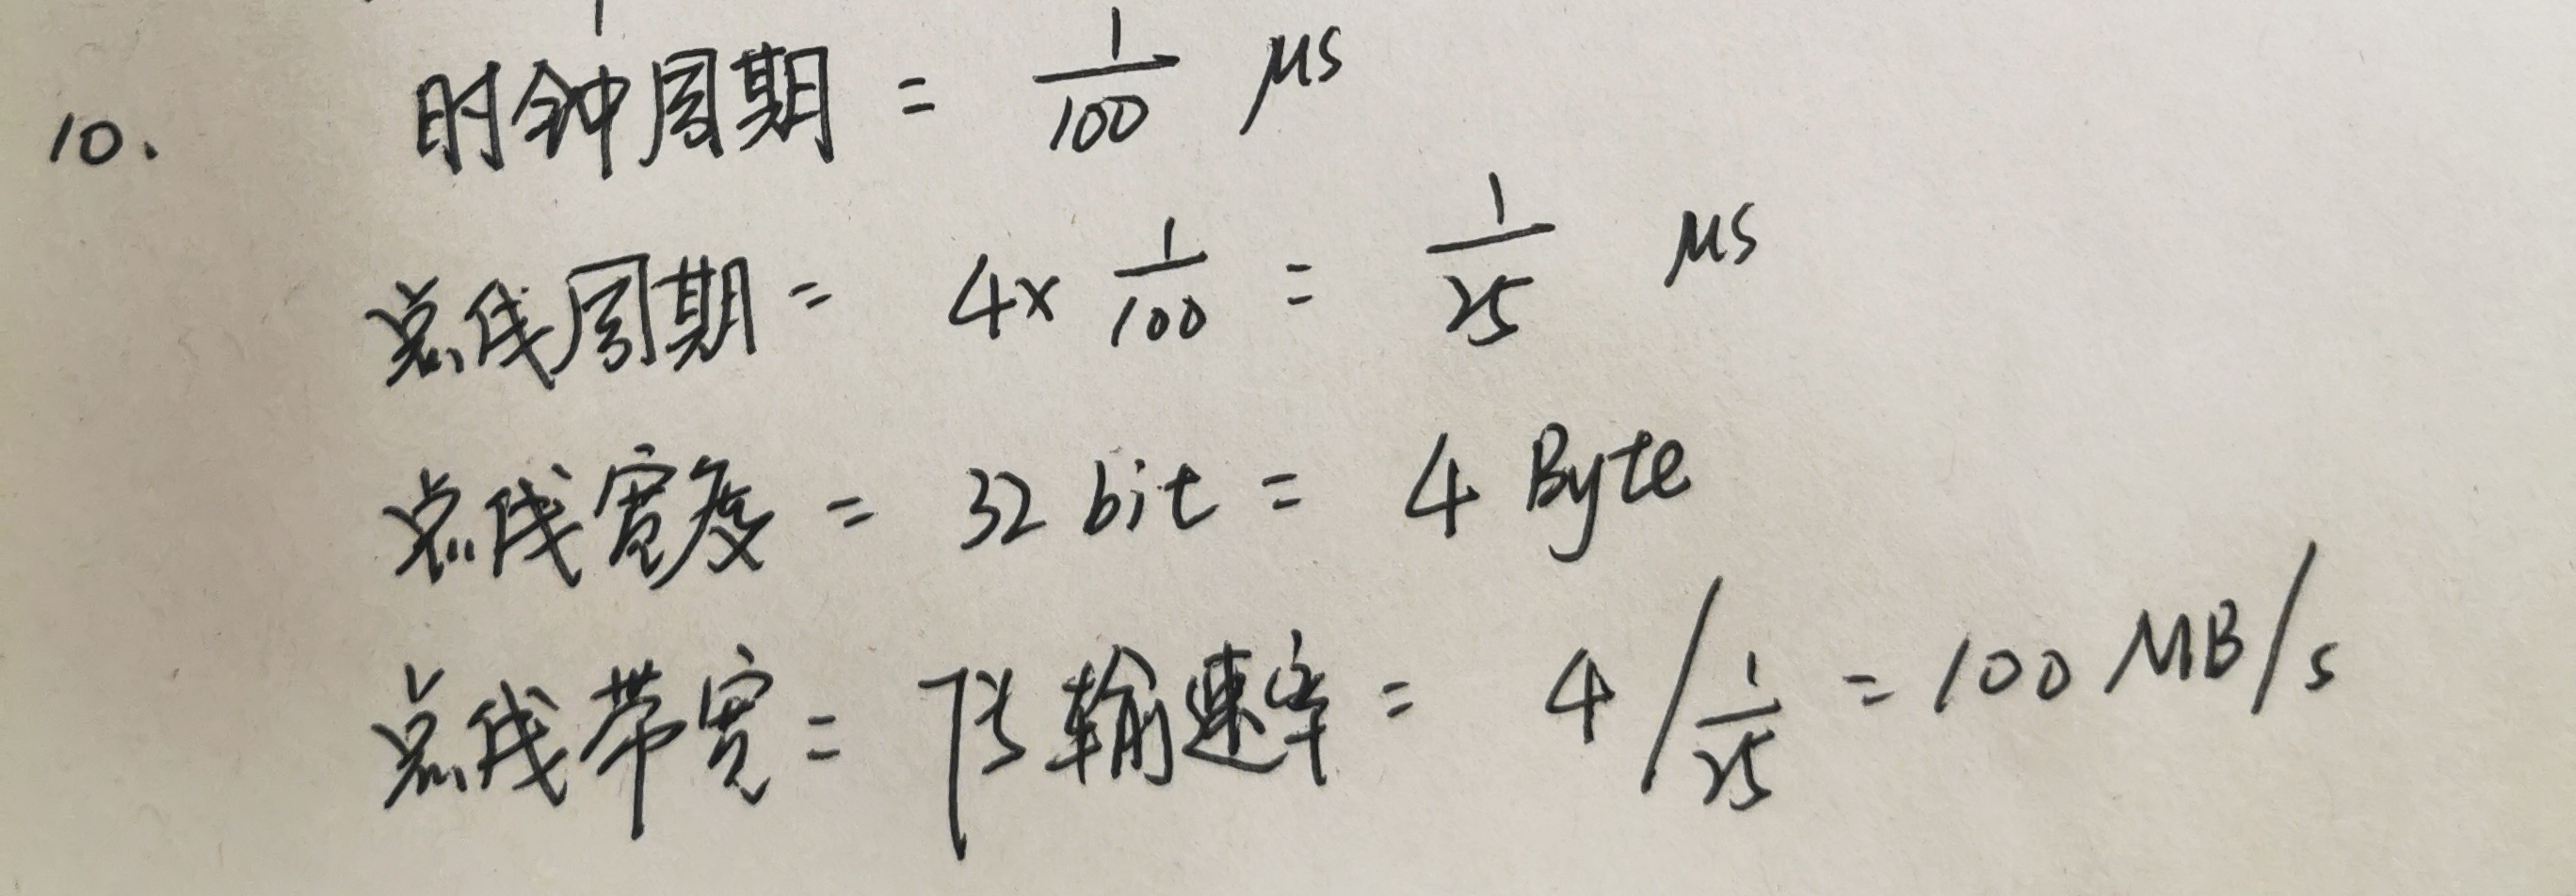 10. 时钟周期 = 1/100 μs
总线周期 = 4× 1/100 = 1/25 μs
总线宽度 = 32 bit = 4 Byte
总线带宽 = 传输速率 = 4 / 1/25 = 100 MB/s